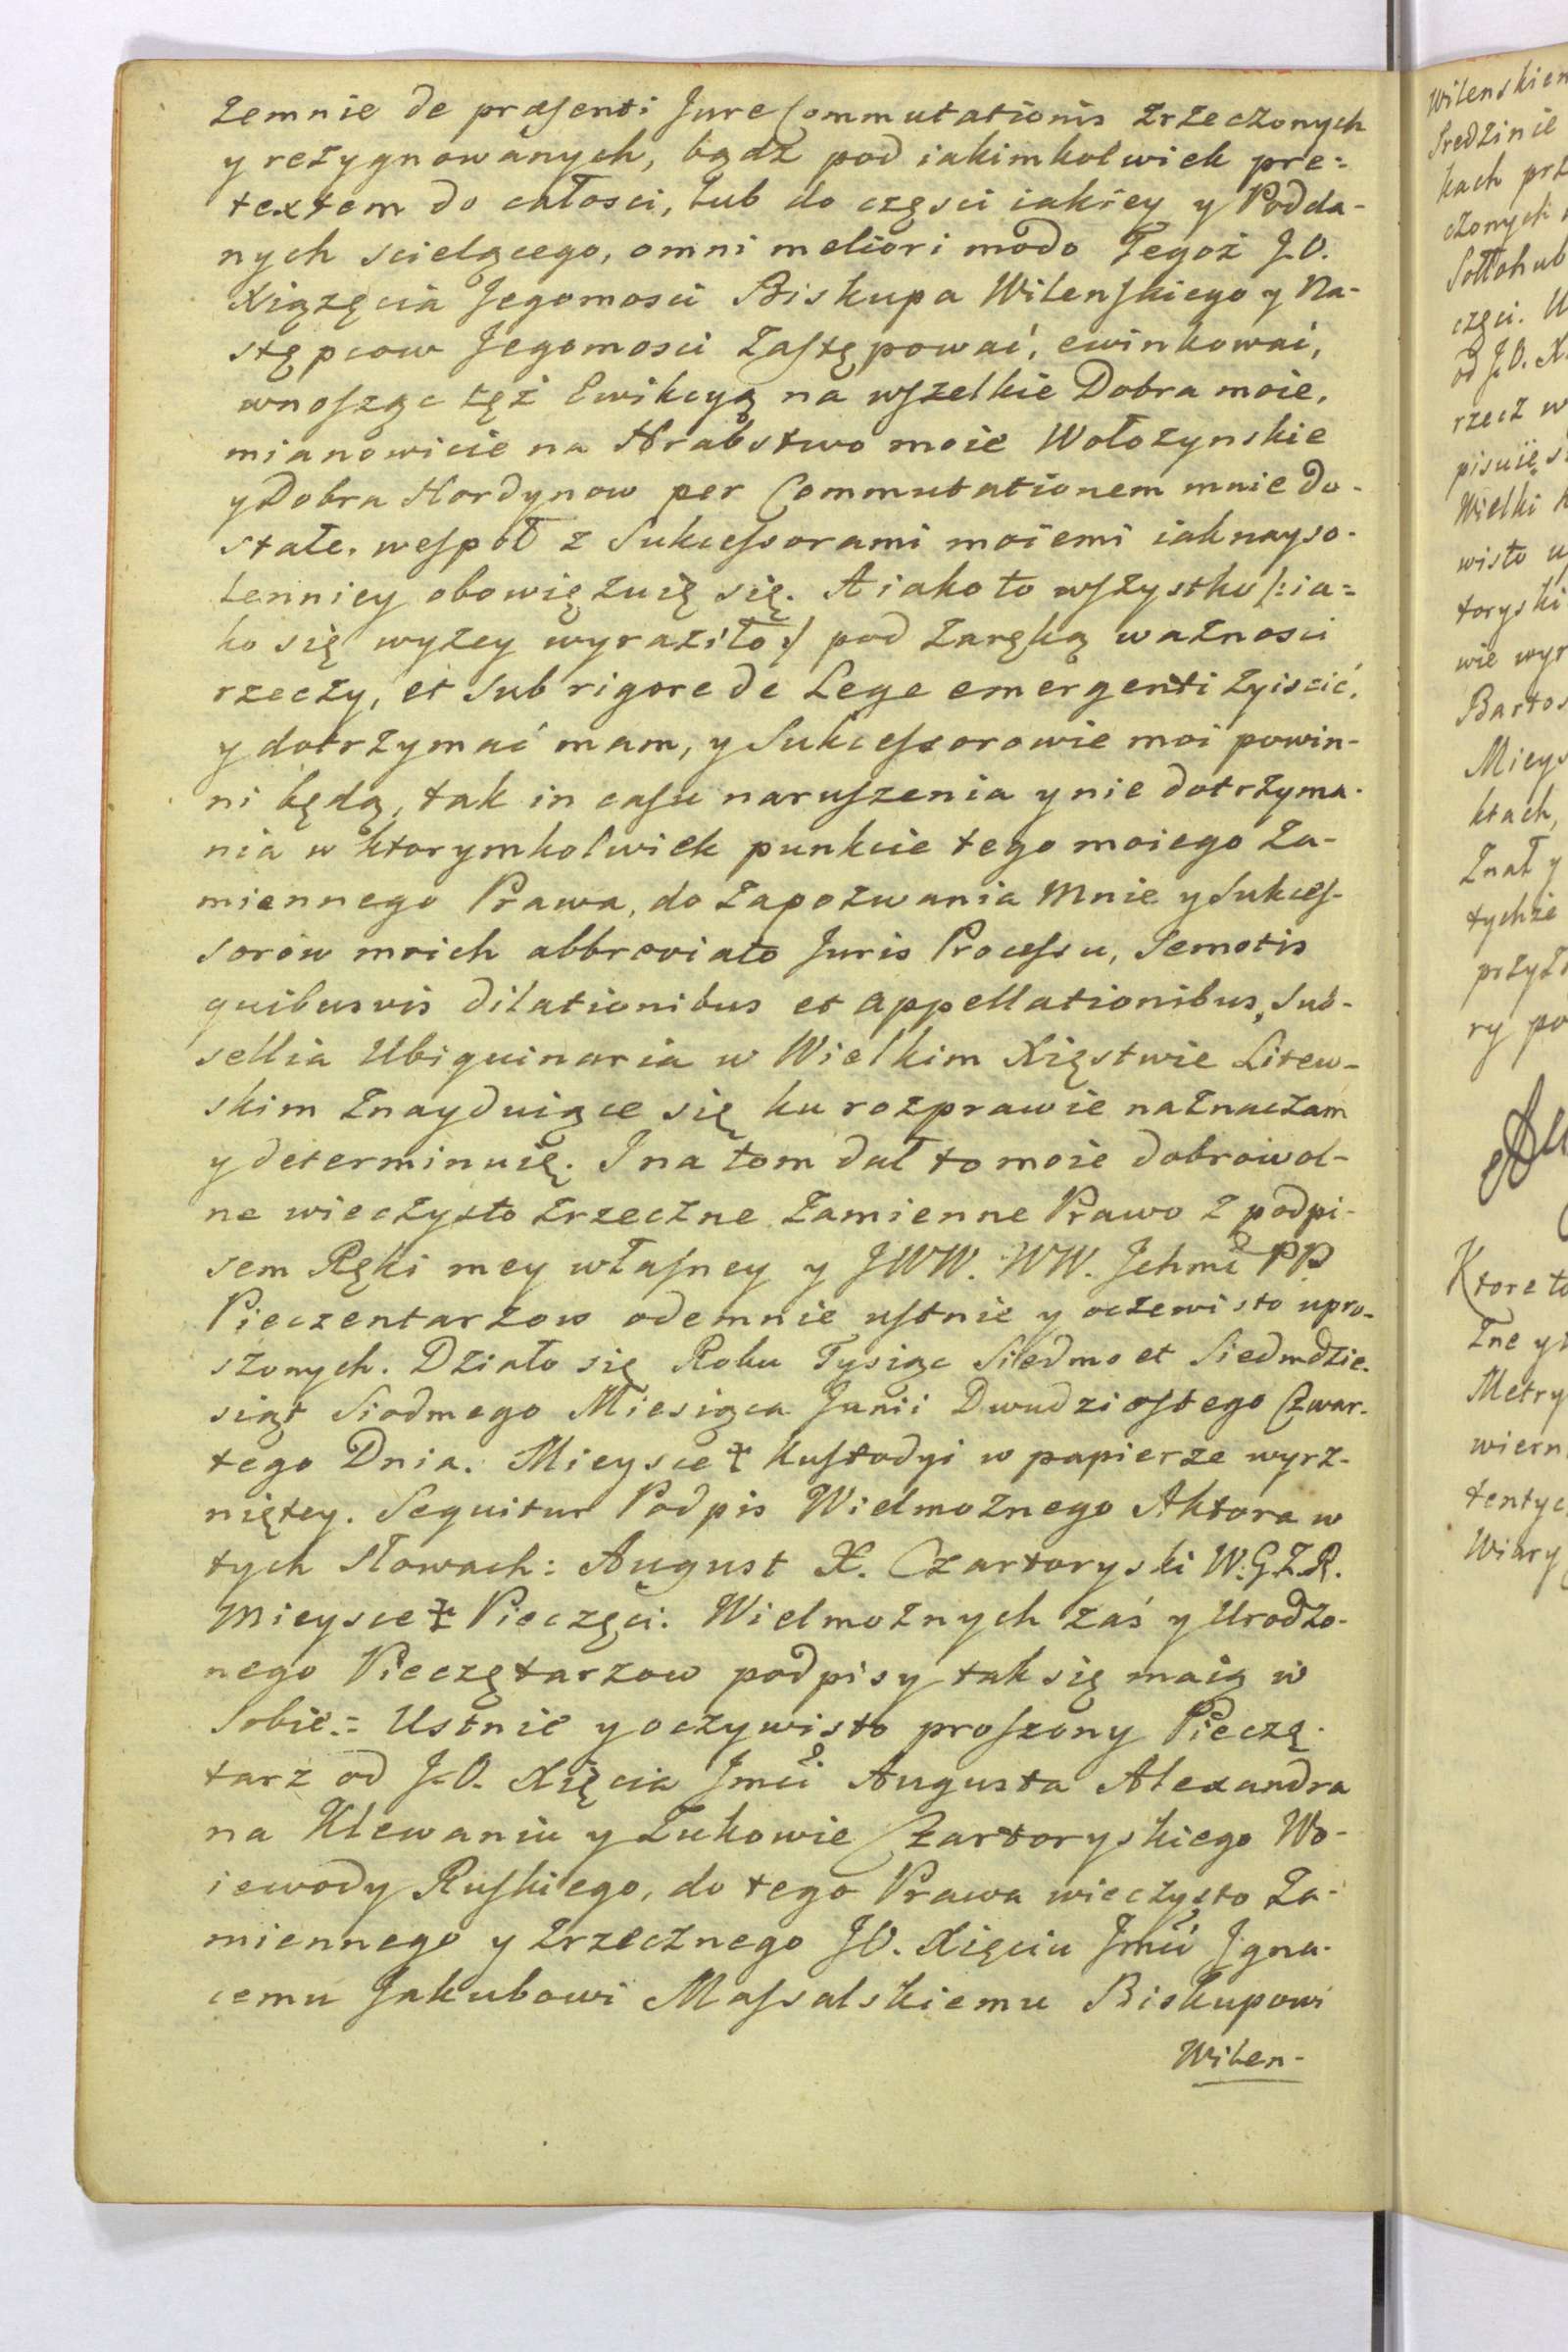 zemnie de præsenti Jure Commutationis zrzeczonych
y rezygnowanych, bądź pod iakimkolwiek pre=
textem do całosci, lub do częsci iakiey y Podda-
nych scielącego, omni meliori modo Tegoż J.O.
Xiążęcia Jegomosci Biskupa Wilenskiego y Na-
stępcow Jegomosci Zastępować, ewinkować,
wnosząc też Ewikcyą na wszelkie Dobra moie,
mianowicie na Hrabstwo moie Wołożynskie
y Dobra Hordynow per Commutationem mnie do-
stałe, wespoł z Sukcessorami moiemi iaknayso-
lenniey obowięzuię się. A iako to wszystko /:ia=
ko się wyżey wyraziło:/ pod zaręką ważnosci
rzeczy, et sub rigore de Lege emergenti zyiscić,
y dotrzymać mam, y Sukcessorowie moi powin-
ni będą, tak in casu naruszenia y nie dotrzyma-
nia w ktorymkolwiek punkcie tego moiego Za-
miennego Prawa, do Zapozwania Mnie y Sukces-
sorów moich abbreviato Juris Processu, Semotis
quibusvis dilationibus et appellationibus, Sub-
sellia Ubiquinaria w Wielkim Xięstwie Litew-
skim Znayduiące się ku rozprawie naznaczam
y determinuię. I na tom dał to moie dobrowol-
ne wieczysto zrzeczne Zamienne Prawo z podpi-
sem Ręki mey własney y JWW. WW. Jchmć PP.
Pieczentarzow odemnie ustnie y oczewisto upro-
szonych. Działo się Roku Tysiąc Siedmset Siedmdzie-
siąt Siodmego Miesiąca Junii Dwudziestego Czwar-
tego Dnia. Mieysce Kustodyi w papierze wyrz-
niętey. Sequitur Podpis Wielmożnego Aktora w
tych Słowach: August X. Czartoryski W:G.Z.R.
Mieysce Pieczęci. Wielmożnych zaś y Urodzo-
nego Pieczętarzow podpisy tak się maią w
Sobie.= Ustnie y oczywisto proszony Pieczę-
tarz od J.O. Xięcia Jmći Augusta Alexandra
na Klewaniu y Żukowie Czartoryskiego Wo-
iewody Ruskiego, do tego Prawa wieczysto Za-
miennego y Zrzecznego JO. Xięciu Jmći Igna-
cemu Jakubowi Massalskiemu Biskupowi
Wilen-
Wilenskiem
Sredzinie
kach prz
czonych
Sołłohub
częci. U
od J.O. X
rzecz w
pisuię s
Wielki
wisto u
toryski
wie wyr
Bartos
Mieys
ktach,
Znał y
tychże
przyz
ry po
Ktore to
zne y
Metry
wiern
tentyc
Wiary